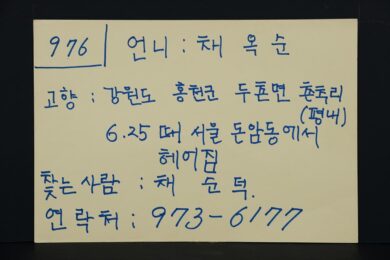 976 언니 : 채 옥 순
고향 : 강원도 홍천군 두촌면 촌촉리
(평내)
6.25 때 서울 돈암동에서
헤어짐
찾는사람 : 채 순 덕.
연락처 : 973-6177